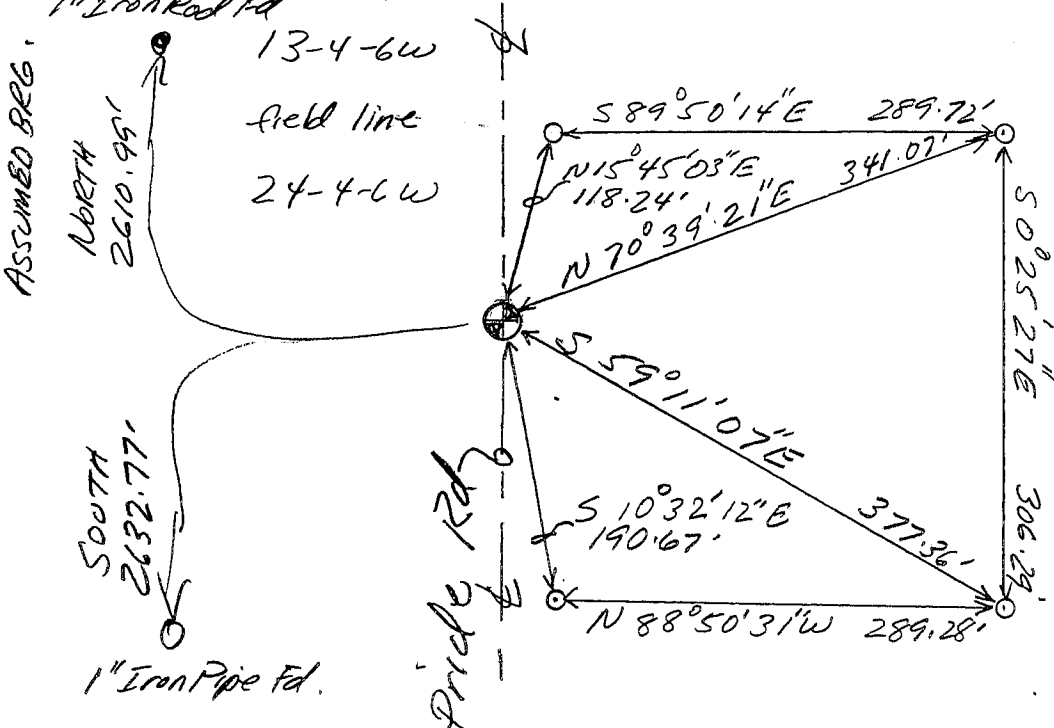 1" Iron Rod Fd
13-4-6W
field line
24-4-6W
ASSUMED BRG.
NORTH
2610.99'
SOUTH
2632.77'
1" Iron Pipe Fd.
Pride Rd
S 89°50'14"E 289.72'
N 15°45'03"E
118.24'
N 70°39'21"E 341.07'
S 0°25'27"E 306.29'
S 59°11'07"E 377.36'
S 10°32'12"E
190.67'
N 88°50'31"W 289.28'